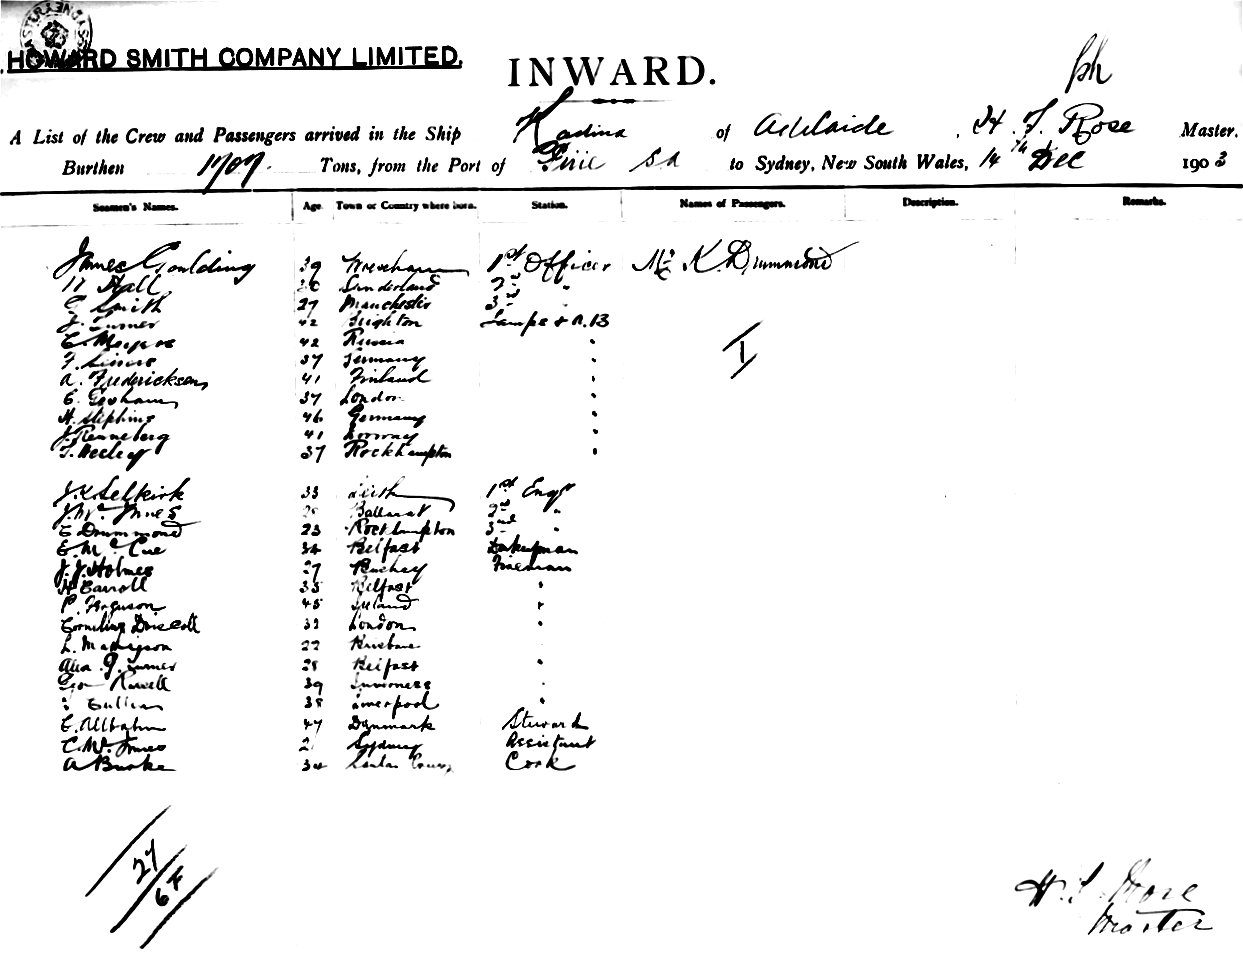 HOWARD SMITH COMPANY LIMITED.
INWARD.
A List of the Crew and Passengers arrived in the Ship Kadina of Adelaide, Rose Master.
Burthen 1707. Tons, from the Port of Pirie SA to Sydney, New South Wales, 14th Dec 1903
Seamen's Names. Age. Town or Country where born. Station. Names of Passengers. Description. Remarks.
James Goulding 39 Wrexham 1st Officer Mr K. Drummond
Hall Sunderland 2nd "
Smith 27 Manchester 3rd "
J. Turner 42 Brighton Lamps & A.B
42 Russia "
37 Germany "
A. Fredericksen 41 Finland "
37 London "
H. Stephens 46 Germany "
J. Renneberg 41 Norway "
37 Rockhampton "
J. K. Selkirk 33 Leith 1st Engr
J. Mc Innes Ballarat 2nd "
E Drummond 23 Rockhampton 3rd "
E. Mc Cue 34 Belfast Donkeyman
J. J. Holmes 27 Fireman
H Carroll 35 Belfast "
P. Ferguson 45 Ireland "
Cornelius Driscoll 32 London "
L. 22 Brisbane "
Alex. J. Turner 28 Belfast "
Geo Rowell 39 Inverness "
38 Liverpool "
47 Denmark Steward
Sydney Assistant
A Burke 34 Cook
27
64
Master